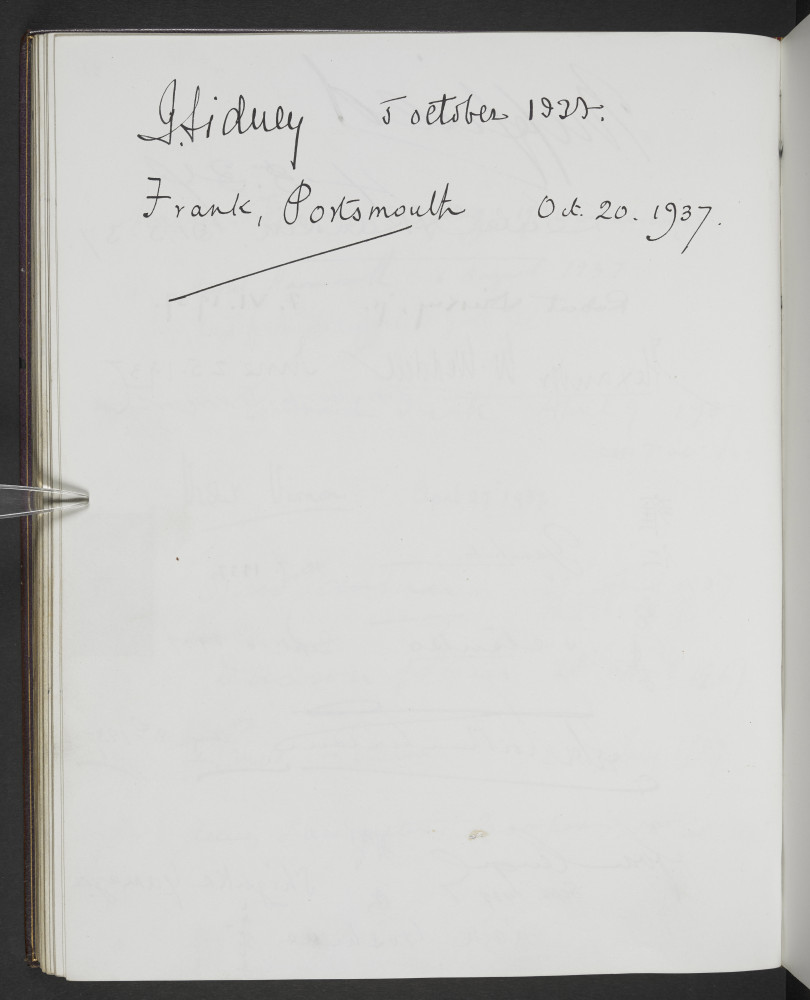 G. Sidney 5 october 1937.
Frank, Portsmouth Oct. 20. 1937.